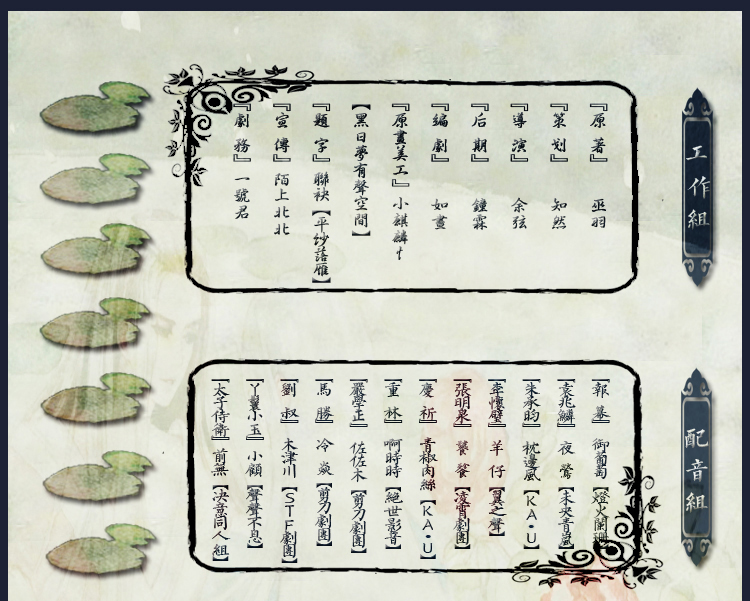 工作組
『原著』 巫羽
『策划』 知然
『導演』 余弦
『后期』 鐘霖
『編劇』 如畫
『原畫美工』 小麒麟†
【黑日夢有聲空間】
『題字』 聯袂【平沙落雁】
『宣傳』 陌上北北
『劇務』 一號君
配音組
『報幕』 御葡萄【燈火闌珊】
『袁兆麟』 夜鶯【未央青嵐】
『朱承昀』 枕邊風【KA.U】
『李懷璧』 羊仔【翼之聲】
『張明泉』 饕餮【凌霄劇團】
『慶祈』 青椒肉絲【KA.U】
『重林』 啊時時【絕世影音】
『嚴學正』 佐佐木【剪刀劇團】
『馬勝』 冷焱【剪刀劇團】
『劉叔』 木津川【STF劇團】
『丫鬟小玉』 小顧【聲聲不息】
『太子侍衛』 前無【決意同人組】